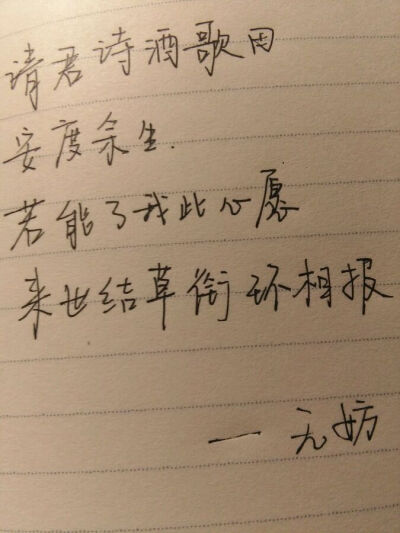 请君诗酒歌田
安度余生.
若能了我此心愿
来世结草衔环相报
— 无妨